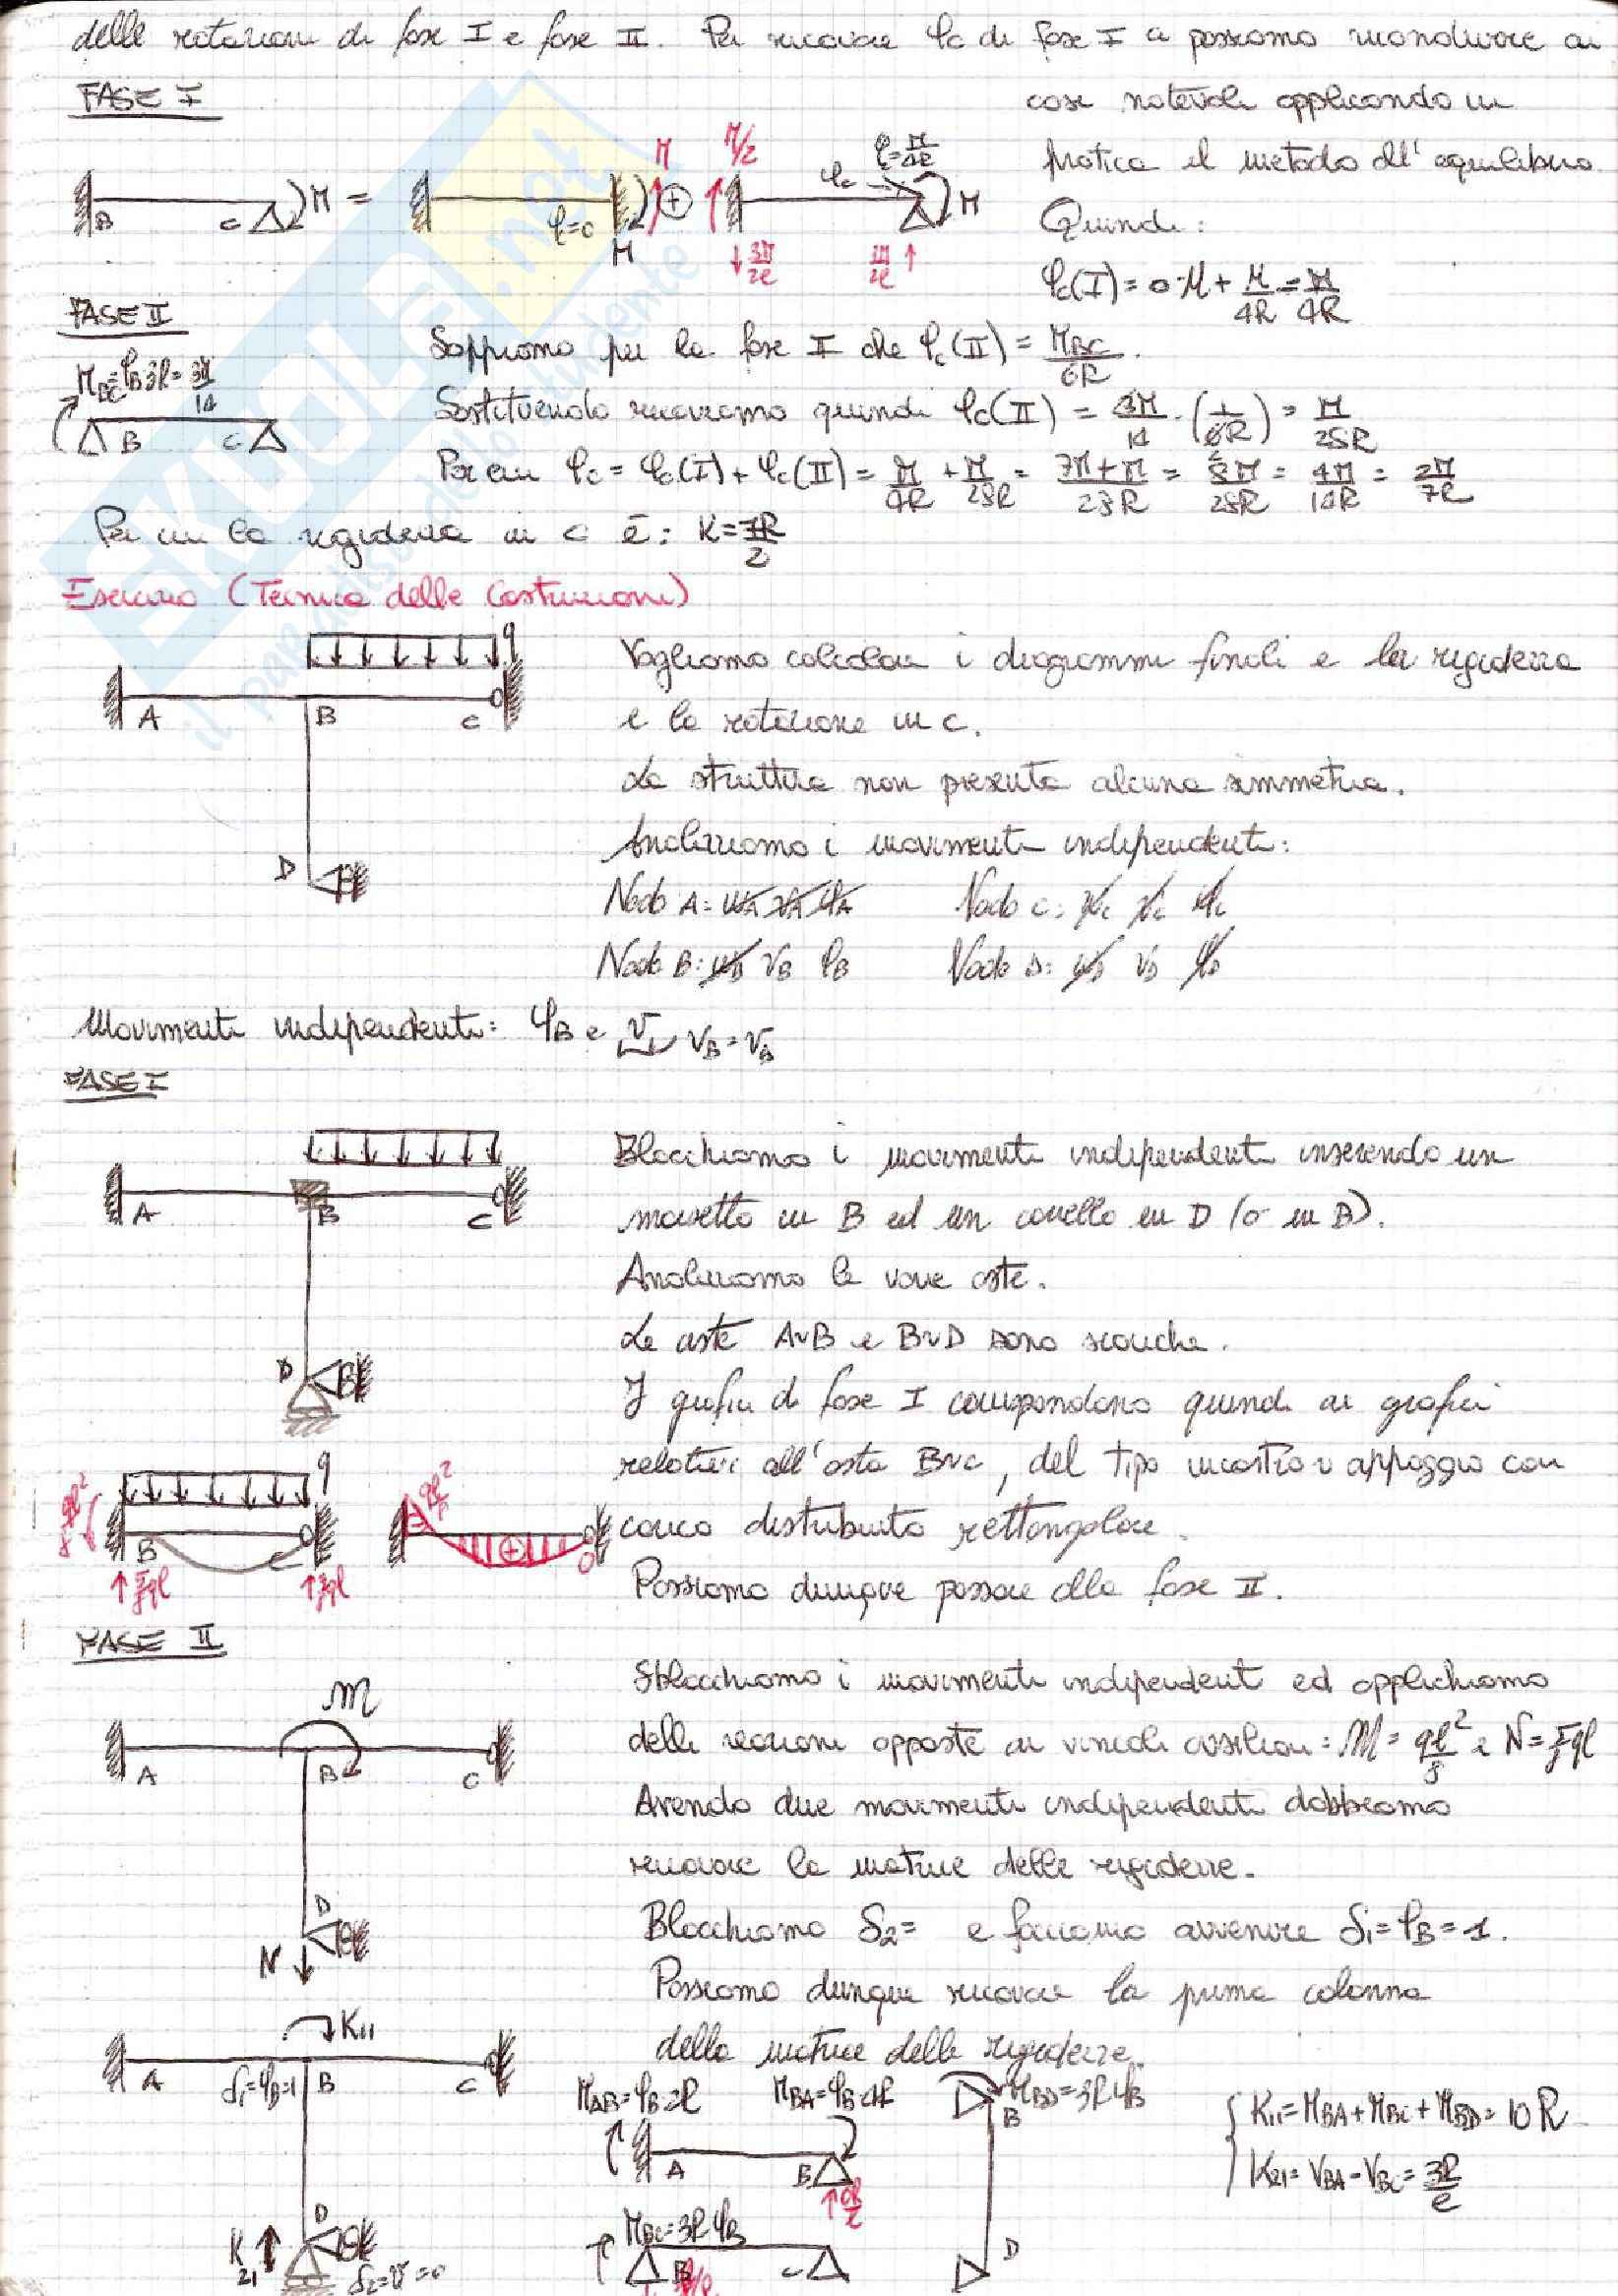 delle rotazioni di fase I e fase II. Per ricavare φc di fase I ci possiamo ricondurre ai
FASE I
casi notevoli applicando in
pratica il metodo dell'equilibrio.
B C M = φ=0 M M ⊕ M/2 φc φ=M/4R M
3M/2l 3M/2l
Quindi:
φc(I) = 0·M + M/4R = M/4R
FASE II
Sappiamo per la fase I che φc(II) = MBC/6R.
MBC=φB3R=3M/14
B C
Sostituendo ricaviamo quindi φc(II) = 3M/14 · (1/6R) = M/28R
Per cui φc = φc(I) + φc(II) = M/4R + M/28R = 7M+M/28R = 8M/28R = 4M/14R = 2M/7R
Per cui la rigidezza in C è: K=7R/2
Esercizio (Tecnica delle Costruzioni)
q
A B C
D
Vogliamo calcolare i diagrammi finali e la rigidezza
e la rotazione in C.
La struttura non presenta alcuna simmetria.
Analizziamo i movimenti indipendenti:
Nodo A: uA vA φA Nodo C: uC vC φC
Nodo B: uB vB φB Nodo D: uD vD φD
Movimenti indipendenti: φB e v vB = vD
FASE I
A B C
D
Blocchiamo i movimenti indipendenti inserendo un
morsetto in B ed un carrello in D (o in B).
Analizziamo le varie aste.
Le aste A~B e B~D sono scariche.
I grafici di fase I corrispondono quindi ai grafici
relativi all'asta B~C, del tipo incastro~appoggio con
carico distribuito rettangolare.
Possiamo dunque passare alla fase II.
ql²/8 q
B C
5/8ql 3/8ql
ql²/8 ⊕ 0
FASE II
M
A B C
D
N
Sblocchiamo i movimenti indipendenti ed applichiamo
delle reazioni opposte ai vincoli ausiliari: M = ql²/8 e N = 5/8ql
Avendo due movimenti indipendenti dobbiamo
ricavare la matrice delle rigidezze.
Blocchiamo δ2= e facciamo avvenire δ1=φB=1.
Possiamo dunque ricavare la prima colonna
della matrice delle rigidezze.
K11
A δ1=φB=1 B C
D
K21 δ2=v=0
MAB=φB2R MBA=φB4R
A B
6R/l
MBC=3RφB
B C
MBD=3RφB
B
D
K11=MBA+MBC+MBD=10R
K21=VBA-VBC=3R/l
SKUOLA.not
il paradiso dello studente